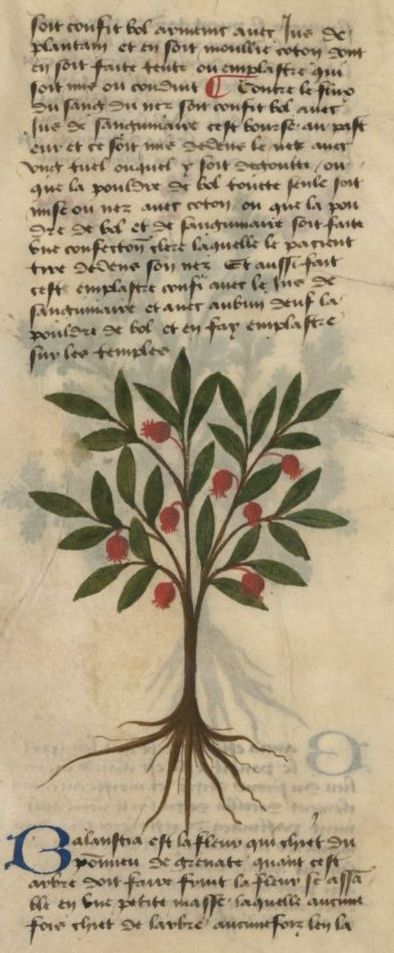 soit confit bol armenic avec Jus de
plantain et en soit moullie coton dont
en soit faicte tente ou emplastre qui
soit mis ou conduit ¶ Contre le flux
du sang du nez soit confit bol avec
Jus de sanguinaire cest bourse au past
eur et ce soit mis dedens le nez avec
vng tuel ouquel y soit degoutte / ou
que la pouldre de bol toute seule soit
mise ou nez avec coton / ou que la poul
dre de bol et de sanguinaire soit faite
vne confection clere laquelle le pacient
tire dedens son nez Et aussi fait
ceste emplastre confi avec le Jus de
sanguinaire et avec aubun deuf la
pouldre de bol et en fay emplastre
sur les temples
Balaustia est la fleur qui chiet du
pommier de grenate quant cest
arbre doit faire fruit la fleur se assã
ble en vne petite masse laquelle aucune
fois chiet de larbre aucunefoiz len la